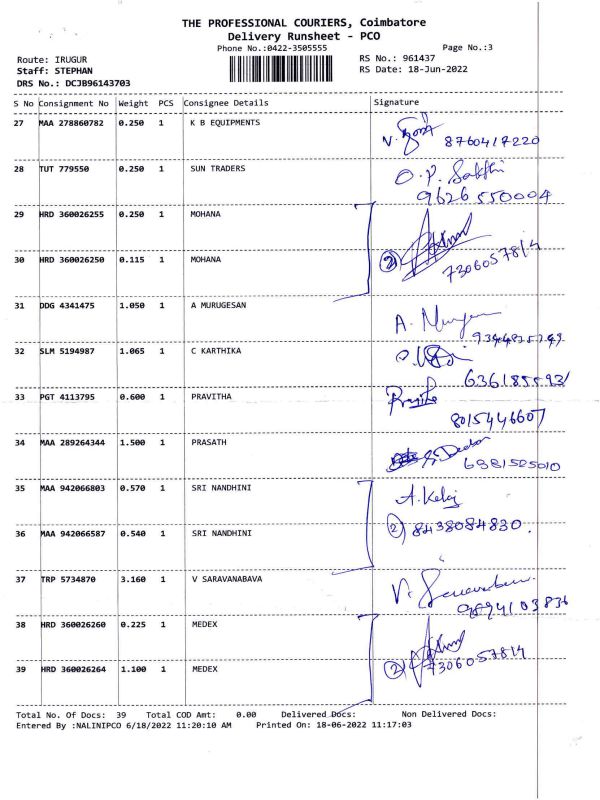 THE PROFESSIONAL COURIERS, Coimbatore
Delivery Runsheet - PCO
Phone No.:0422-3505555 Page No.:3
Route: IRUGUR RS No.: 961437
Staff: STEPHAN RS Date: 18-Jun-2022
DRS No.: DCJB96143703
S No Consignment No Weight PCS Consignee Details Signature
27 MAA 278860782 0.250 1 K B EQUIPMENTS
8760417220
28 TUT 779550 0.250 1 SUN TRADERS O.P. Sakthi
9626550004
29 HRD 360026255 0.250 1 MOHANA
30 HRD 360026250 0.115 1 MOHANA 2
7306057814
31 DDG 4341475 1.050 1 A MURUGESAN A. Murugesan
32 SLM 5194987 1.065 1 C KARTHIKA
33 PGT 4113795 0.600 1 PRAVITHA
8015446607
34 MAA 289264344 1.500 1 PRASATH
6381525010
35 MAA 942066803 0.570 1 SRI NANDHINI
36 MAA 942066587 0.540 1 SRI NANDHINI 2 8438084830.
37 TRP 5734870 3.160 1 V SARAVANABAVA
9894103836
38 HRD 360026260 0.225 1 MEDEX
39 HRD 360026264 1.100 1 MEDEX 2 7306057814
Total No. Of Docs: 39 Total COD Amt: 0.00 Delivered Docs: Non Delivered Docs:
Entered By :NALINIPCO 6/18/2022 11:20:10 AM Printed On: 18-06-2022 11:17:03